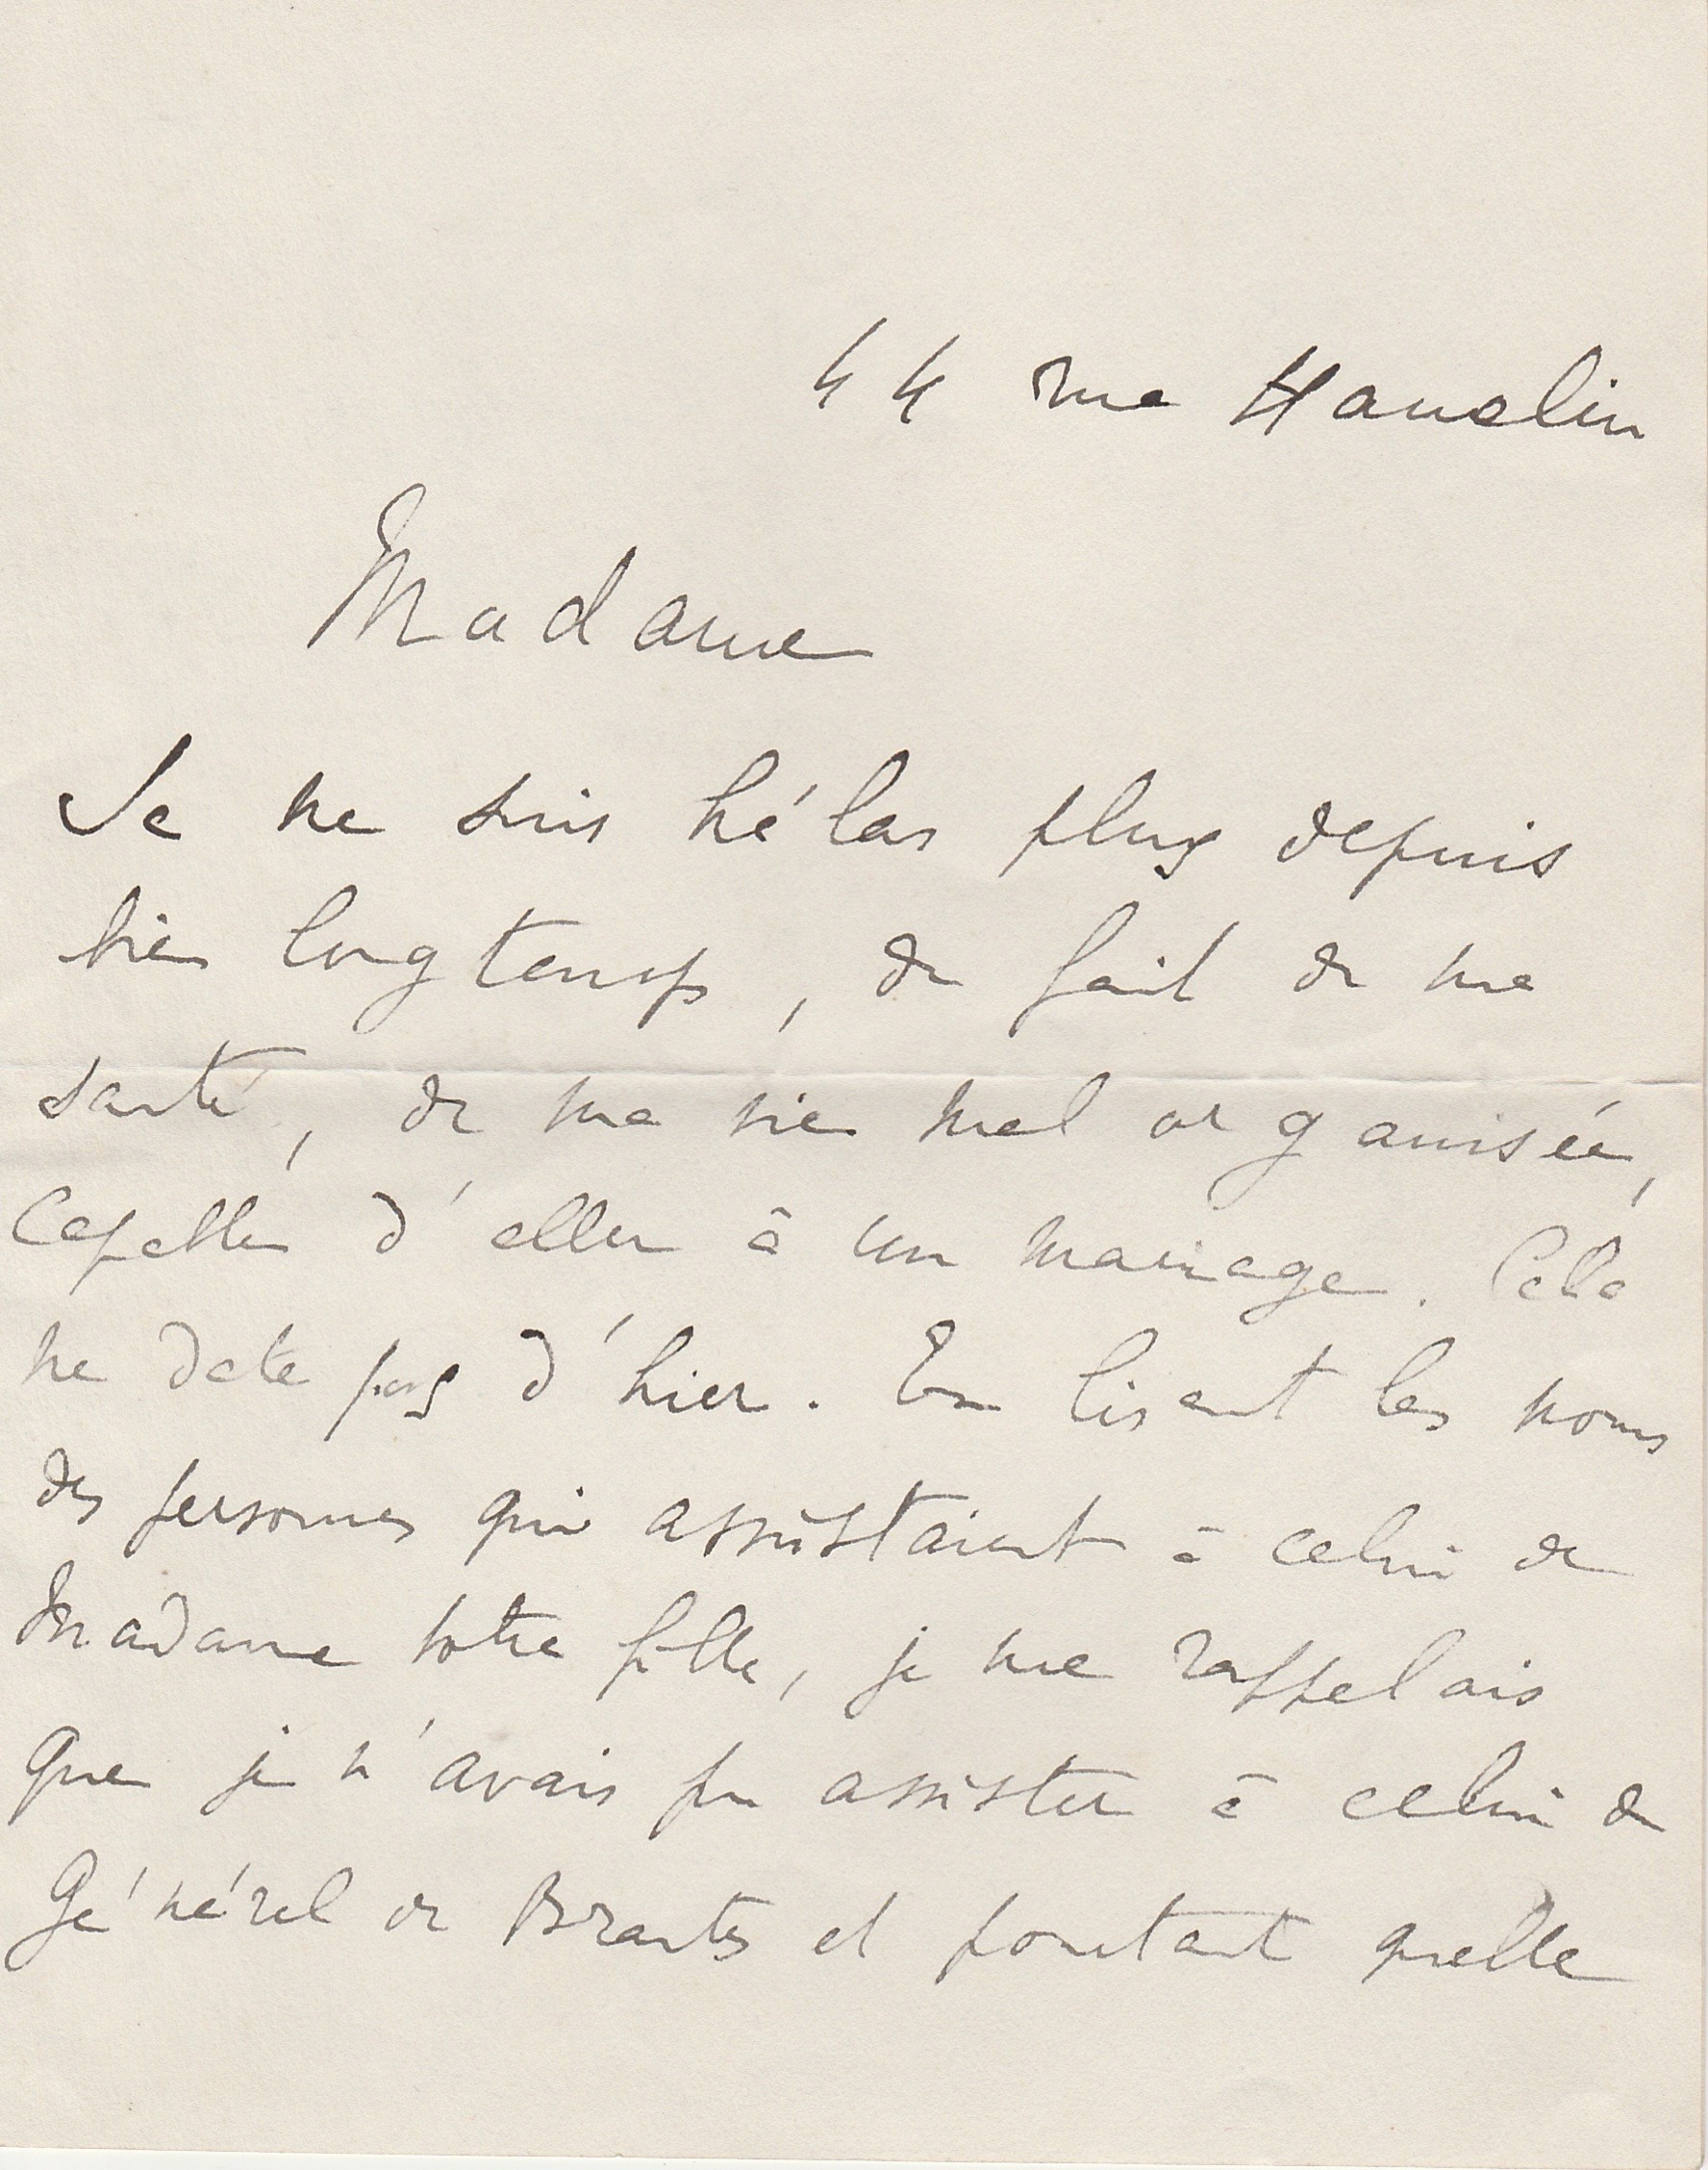 44 rue Hamelin
Madame
Je ne suis hélas plus depuis
bien longtemps, du fait de ma
santé, de ma vie mal organisée,
capable d'aller à un mariage. Cela
ne date pas d'hier. En lisant les noms
des personnes qui assistaient à celui de
Madame votre fille, je me rappelais
que je n'avais pu assister à celui du
Général de Brantes et pourtant quelle